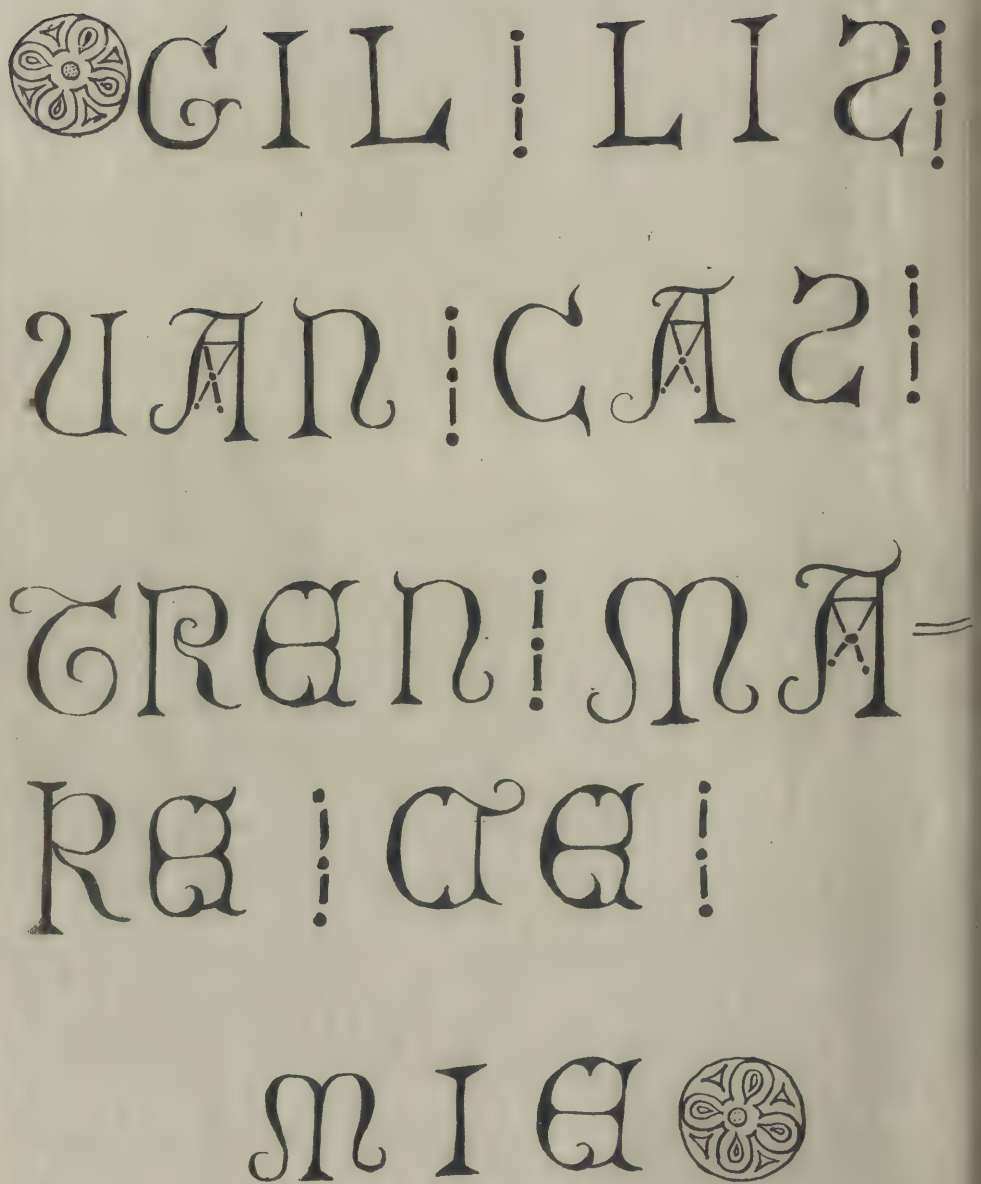 GIL ⁝ LIS ⁝
UAN ⁝ CAS ⁝
TREN ⁝ MA=
RE ⁝ CTE ⁝
MIE